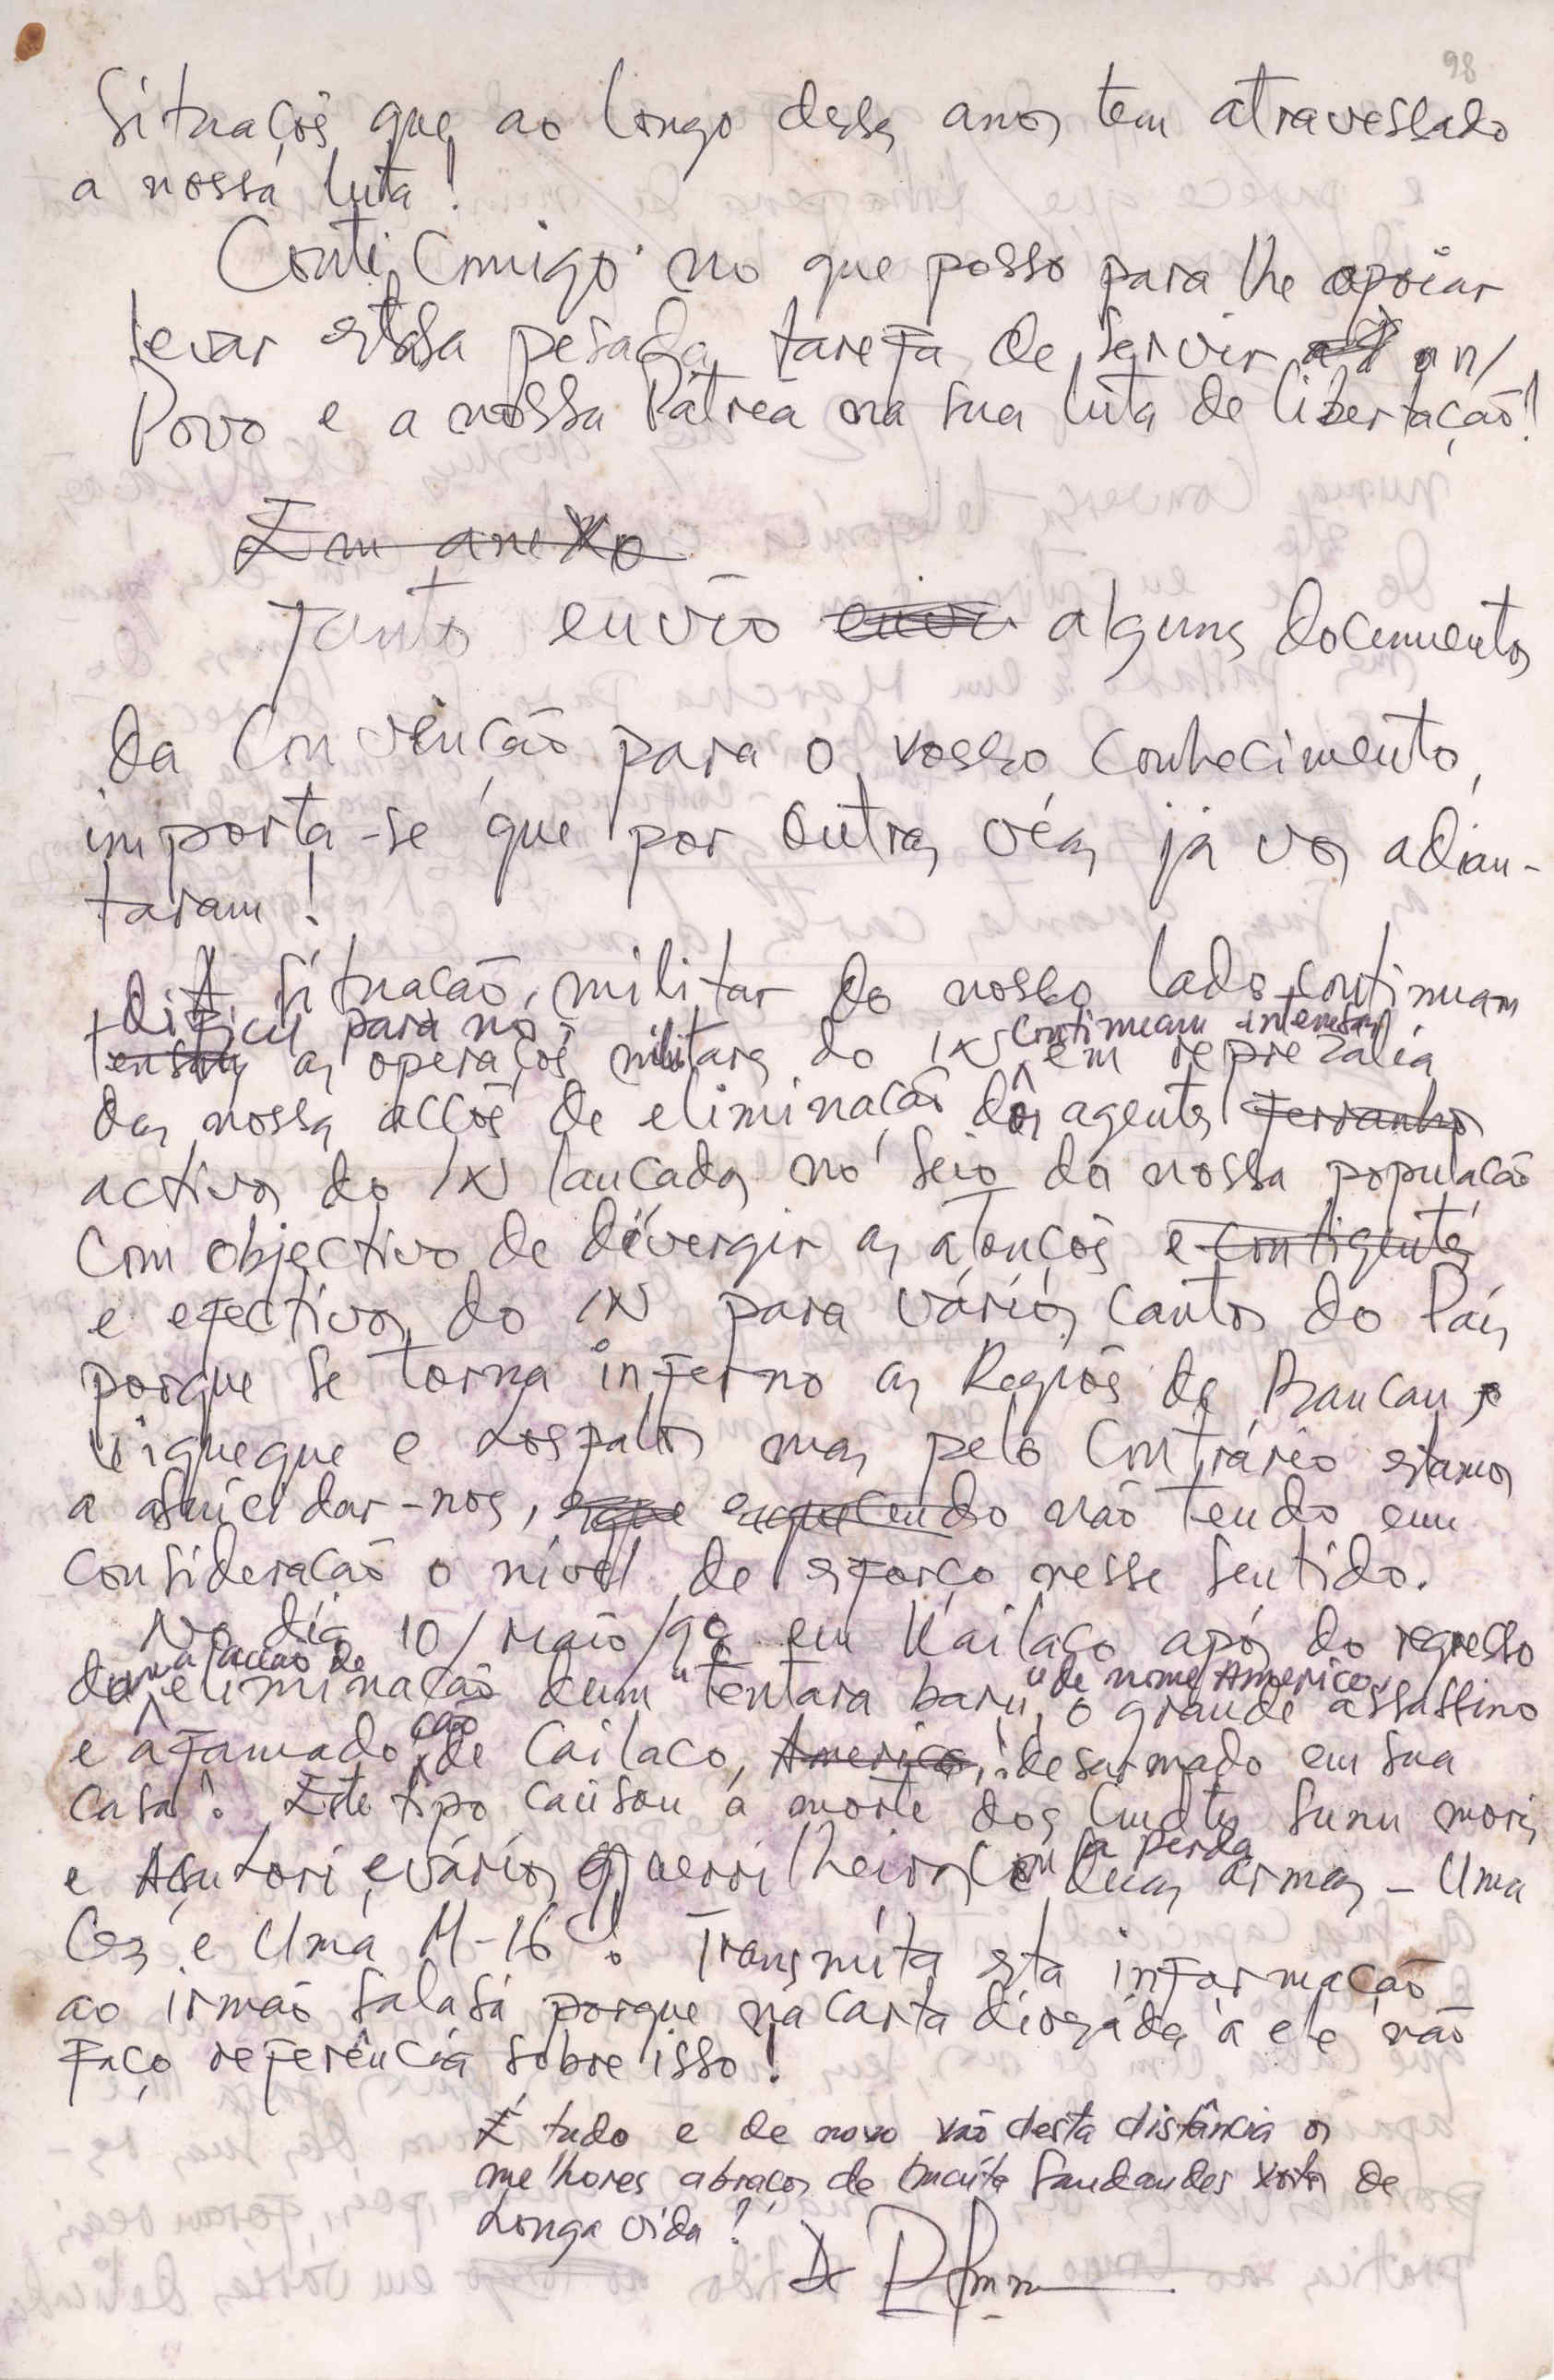 98
Situações que ao longo desses anos tem atravessado
a nossa luta!
Conti comigo no que posso para lhe apoiar
levar essa pesada tarefa de servir o n/
Povo e a nossa Pátria na sua luta de libertação!
Em anexo
Junto envio envio alguns documentos
da Convenção para o vosso conhecimento,
importa-se que por outras vias já vos adian-
taram!
A situação militar do nosso lado continuam
difícil para nós,
tensas as operações militares do IN continuam intensas em reprezália
das nossas acções de eliminação dos agentes ferranhos
activos do IN lançadas no seio da nossa população
com objectivo de divergir as atenções e contigentes
e efectivos do IN para vários cantos do País
porque se torna inferno as Regiões de Baucau,
Viqueque e Lospalos mas pelo contrário estamos
a asuicidar-nos, esquecendo não tendo em
consideração o nível de esforço nesse sentido.
No dia 10/Maio/98 em Kailaco após do regresso
duma acção de eliminação dum "tentara baru" de nome Americo, o grande assassino
e afamado cão de Cailaco, Americo, desarmado em sua
casa! Este tipo causou a morte dos Cmdts Sunu mori,
e Asu Lori e vários guerrilheiros com a perda duas armas - Uma
G3 e Uma M-16! Transmita esta informação
ao irmão Salasá porque na carta dirigida à ele não
faço referência sobre isso!
É tudo e de novo vão desta distância os
melhores abraços de muita saudandes votos de
Longa vida!